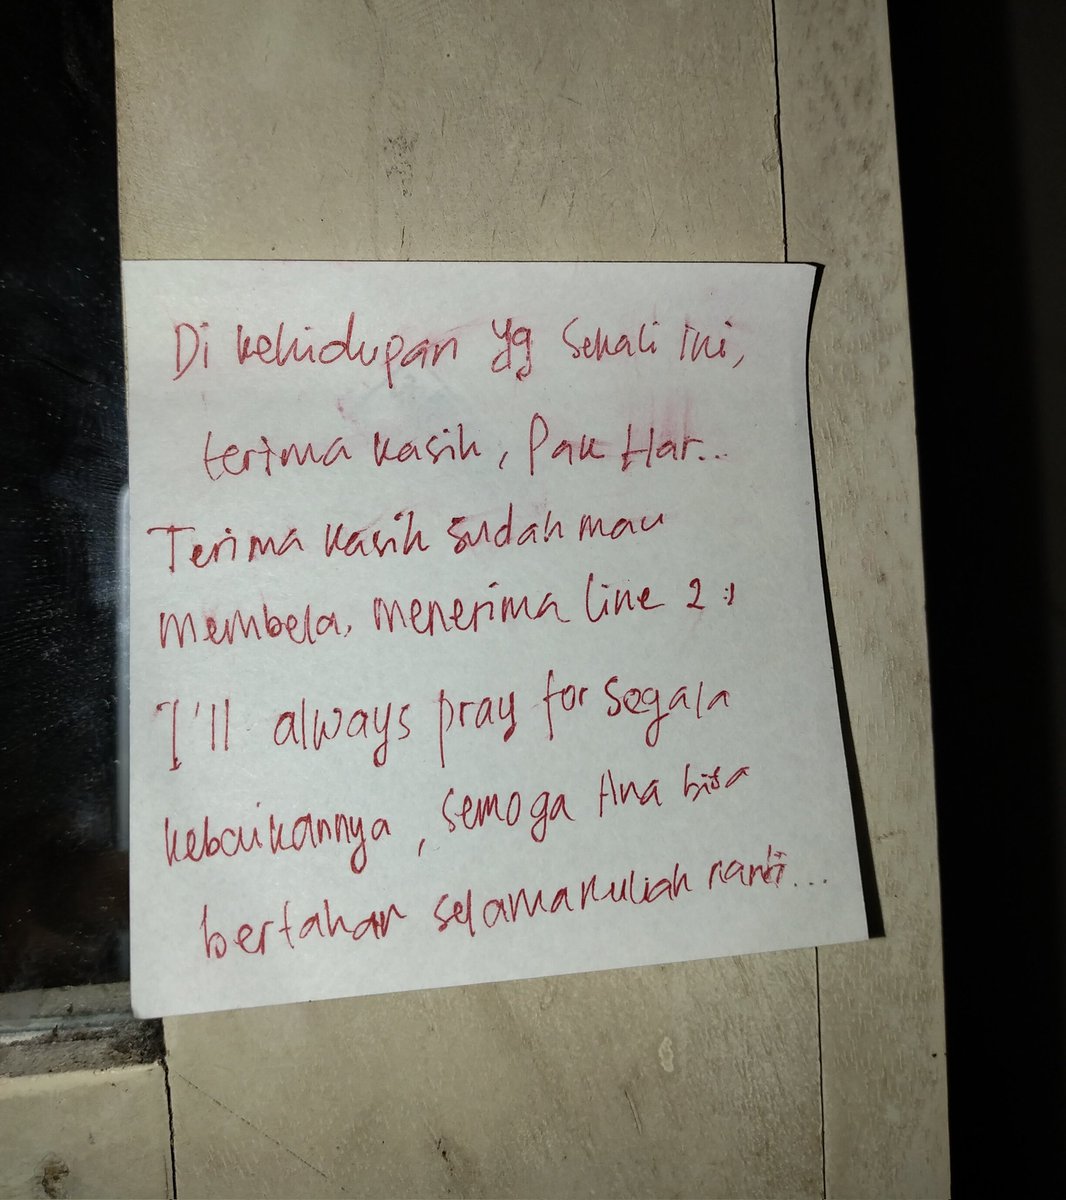 Di kehidupan yg sekali ini,
terima kasih, Pak Har...
Terima kasih sudah mau
membela, menerima line 2 :)
I'll always pray for segala
kebaikannya, semoga Ana bisa
bertahan selama kuliah nanti...